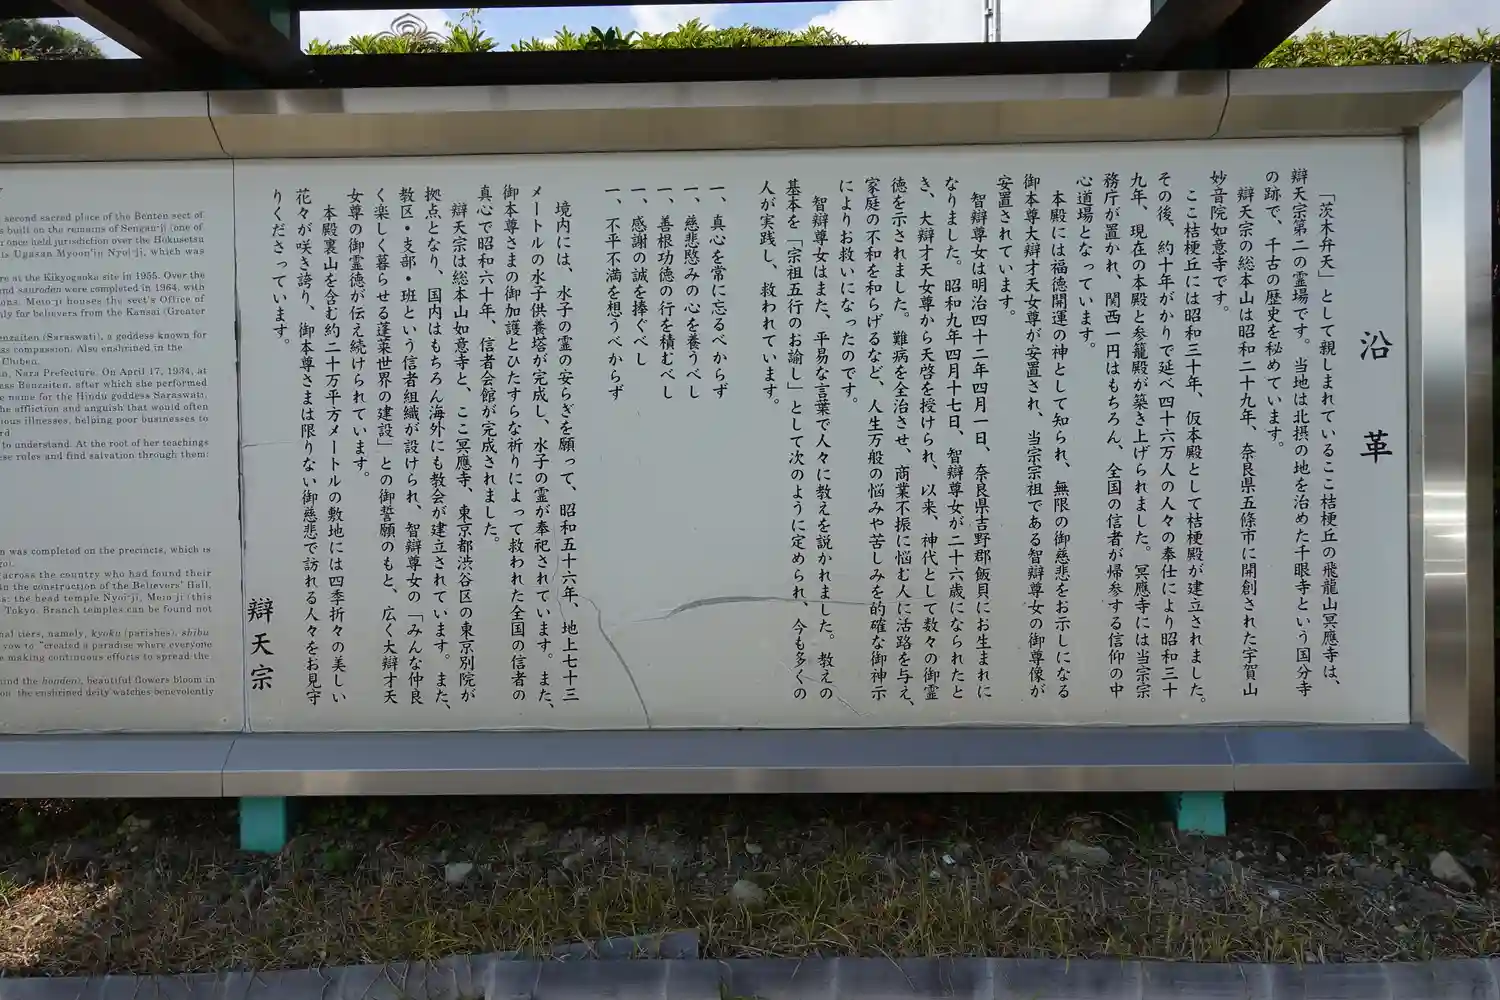 沿革
「茨木弁天」として親しまれているここ桔梗丘の飛龍山冥應寺は、
辯天宗第二の霊場です。当地は北摂の地を治めた千眼寺という国分寺
の跡で、千古の歴史を秘めています。
辯天宗の総本山は昭和二十九年、奈良県五條市に開創された宇賀山
妙音院如意寺です。
ここ桔梗丘には昭和三十年、仮本殿として桔梗殿が建立されました。
その後、約十年がかりで延べ四十六万人の人々の奉仕により昭和三十
九年、現在の本殿と参籠殿が築き上げられました。冥應寺には当宗宗
務庁が置かれ、関西一円はもちろん、全国の信者が帰参する信仰の中
心道場となっています。
本殿には福徳開運の神として知られ、無限の御慈悲をお示しになる
御本尊大辯才天女尊が安置され、当宗宗祖である智辯尊女の御尊像が
安置されています。
智辯尊女は明治四十二年四月一日、奈良県吉野郡飯貝にお生まれに
なりました。昭和九年四月十七日、智辯尊女が二十六歳になられたと
き、大辯才天女尊から天啓を授けられ、以来、神代として数々の御霊
徳を示されました。難病を全治させ、商業不振に悩む人に活路を与え、
家庭の不和を和らげるなど、人生万般の悩みや苦しみを的確な御神示
によりお救いになったのです。
智辯尊女はまた、平易な言葉で人々に教えを説かれました。教えの
基本を「宗祖五行のお諭し」として次のように定められ、今も多くの
人が実践し、救われています。
一、真心を常に忘るべからず
一、慈悲愍みの心を養うべし
一、善根功徳の行を積むべし
一、感謝の誠を捧ぐべし
一、不平不満を想うべからず
境内には、水子の霊の安らぎを願って、昭和五十六年、地上七十三
メートルの水子供養塔が完成し、水子の霊が奉祀されています。また、
御本尊さまの御加護とひたすらな祈りによって救われた全国の信者の
真心で昭和六十年、信者会館が完成されました。
辯天宗は総本山如意寺と、ここ冥應寺、東京都渋谷区の東京別院が
拠点となり、国内はもちろん海外にも教会が建立されています。また、
教区・支部・班という信者組織が設けられ、智辯尊女の「みんな仲良
く楽しく暮らせる蓬莱世界の建設」との御誓願のもと、広く大辯才天
女尊の御霊徳が伝え続けられています。
本殿裏山を含む約二十万平方メートルの敷地には四季折々の美しい
花々が咲き誇り、御本尊さまは限りない御慈悲で訪れる人々をお見守
りくださっています。
辯天宗
second sacred place of the Benten sect of
s built on the remains of Sengan-ji (one of
once held jurisdiction over the Hokusetsu
is Ugasan Myoon'in Nyoi-ji, which was
re at the Kikyogaoka site in 1955. Over the
nd sanroden were completed in 1964, with
ions. Meio-ji houses the sect's Office of
nly for believers from the Kansai (Greater
enzaiten (Saraswati), a goddess known for
ss compassion. Also enshrined in the
Chiben.
n, Nara Prefecture. On April 17, 1934, at
ess Benzaiten, after which she performed
e name for the Hindu goddess Saraswati,
he affliction and anguish that would often
ious illnesses, helping poor businesses to
rd
to understand. At the root of her teachings
ese rules and find salvation through them:
n was completed on the precincts, which is
across the country who had found their
n the construction of the Believers' Hall,
s: the head temple Nyoi-ji, Meio-ji (this
Tokyo. Branch temples can be found not
nal tiers, namely, kyoku (parishes), shibu
vow to "created a paradise where everyone
e making continuous efforts to spread the
und the honden), beautiful flowers bloom in
on the enshrined deity watches benevolently